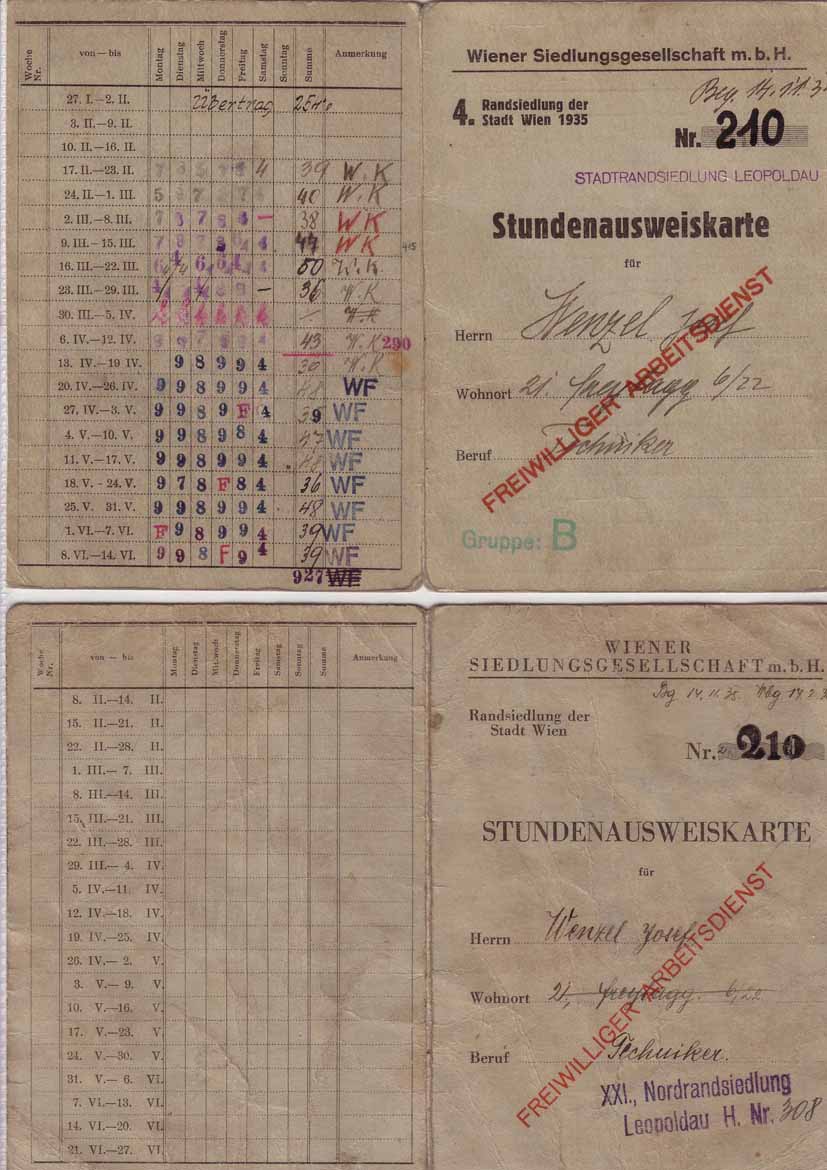 Woche Nr. von – bis Montag Dienstag Mittwoch Donnerstag Freitag Samstag Sonntag Summe Anmerkung
27. I.–2. II. Übertrag
3. II.–9. II.
10. II.–16. II.
17. II.–23. II. 4 39 W.K
24. II.–1. III. 40 W.K
2. III.–8. III. 7 8 7 8 4 – 38 WK
9. III.–15. III. WK
16. III.–22. III. 50 W.K.
23. III.–29. III. – 36 W.K
30. III.–5. IV.
6. IV.–12. IV. 43 W.K 290
13. IV.–19 IV. 9 8 9 9 4 W.K
20. IV.–26. IV. 9 9 8 9 9 4 48 WF
27. IV.–3. V. 9 9 8 9 F 4 39 WF
4. V.–10. V. 9 9 8 9 8 4 47 WF
11. V.–17. V. 9 9 8 9 9 4 48 WF
18. V. - 24. V. 9 7 8 F 8 4 36 WF
25. V. 31. V. 9 9 8 9 9 4 48 WF
1. VI.–7. VI. F 9 8 9 9 4 39 WF
8. VI.–14. VI. 9 9 8 F 9 4 39 WF
927 WF
Wiener Siedlungsgesellschaft m. b. H.
4. Randsiedlung der
Stadt Wien 1935
Nr. 210
STADTRANDSIEDLUNG LEOPOLDAU
Stundenausweiskarte
für
Herrn Wenzel Josef
Wohnort 21. 6/22
Beruf Techniker
FREIWILLIGER ARBEITSDIENST
Gruppe: B
Woche Nr. von — bis Montag Dienstag Mittwoch Donnerstag Freitag Samstag Sonntag Summe Anmerkung
8. II.—14. II.
15. II.—21. II.
22. II.—28. II.
1. III.— 7. III.
8. III.—14. III.
15. III.—21. III.
22. III.—28. III.
29. III.— 4. IV.
5. IV.—11. IV.
12. IV.—18. IV.
19. IV.—25. IV.
26. IV.— 2. V.
3. V.— 9. V.
10. V.—16. V.
17. V.—23. V.
24. V.—30. V.
31. V.— 6. VI.
7. VI.—13. VI.
14. VI.—20. VI.
21. VI.—27. VI.
WIENER
SIEDLUNGSGESELLSCHAFT m. b. H.
Bg 14. 11. 35.
Randsiedlung der
Stadt Wien
Nr. 210
STUNDENAUSWEISKARTE
für
Herrn Wenzel Josef
Wohnort 21, 6/22
Beruf Techniker.
FREIWILLIGER ARBEITSDIENST
XXI., Nordrandsiedlung
Leopoldau H. Nr. 308